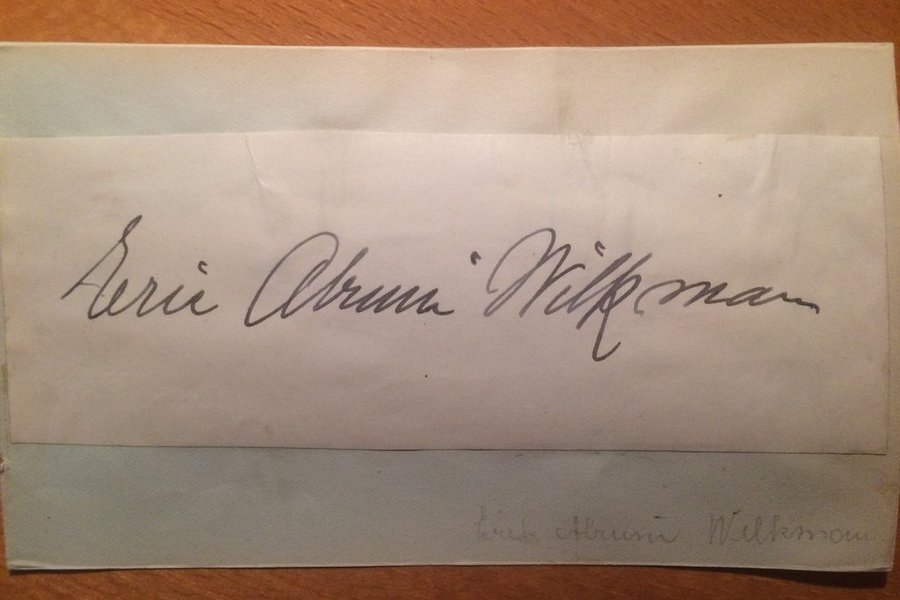 Eric Abruni Wilkman
Erik Abruni Wilkman